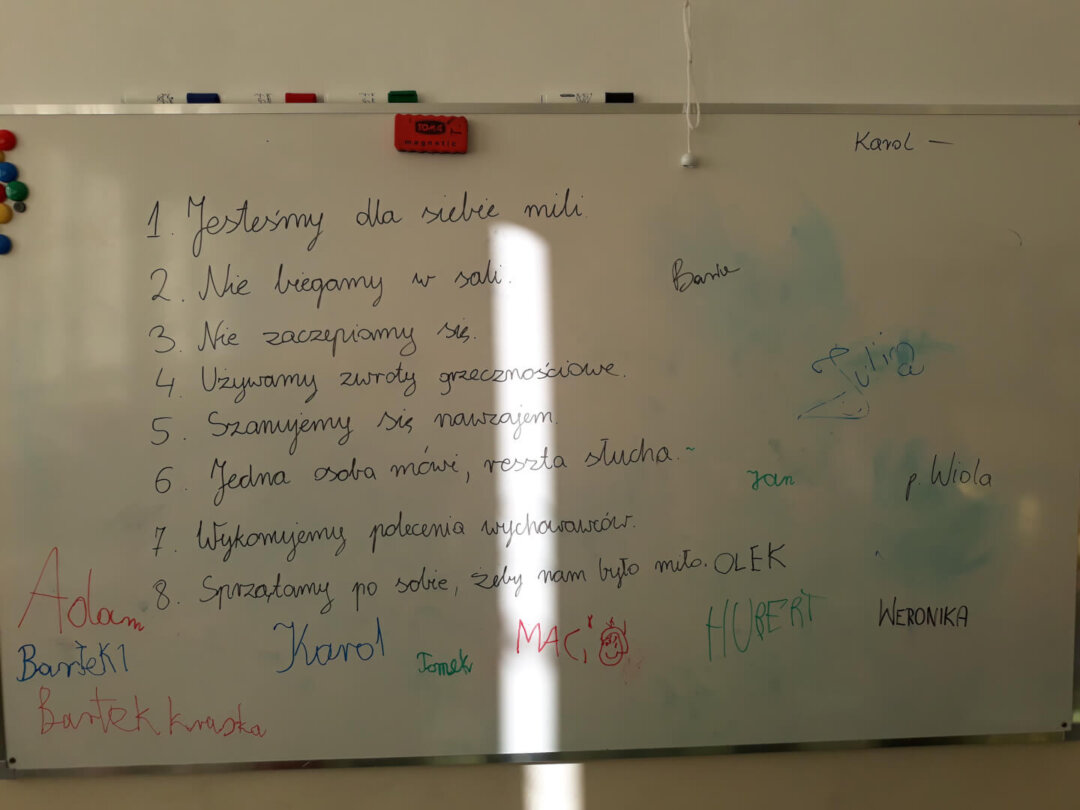 TOMA
magnetic
Karol —
1. Jesteśmy dla siebie mili.
2. Nie biegamy w sali.
3. Nie zaczepiamy się.
4. Używamy zwroty grzecznościowe.
5. Szanujemy się nawzajem.
6. Jedna osoba mówi, reszta słucha.
7. Wykonujemy polecenia wychowawców.
8. Sprzątamy po sobie, żeby nam było miło.
Jan
p. Wiola
OLEK
Adam
Bartek 1
Karol
Tomek
MACI
HUBERT
WERONIKA
Bartek kraska